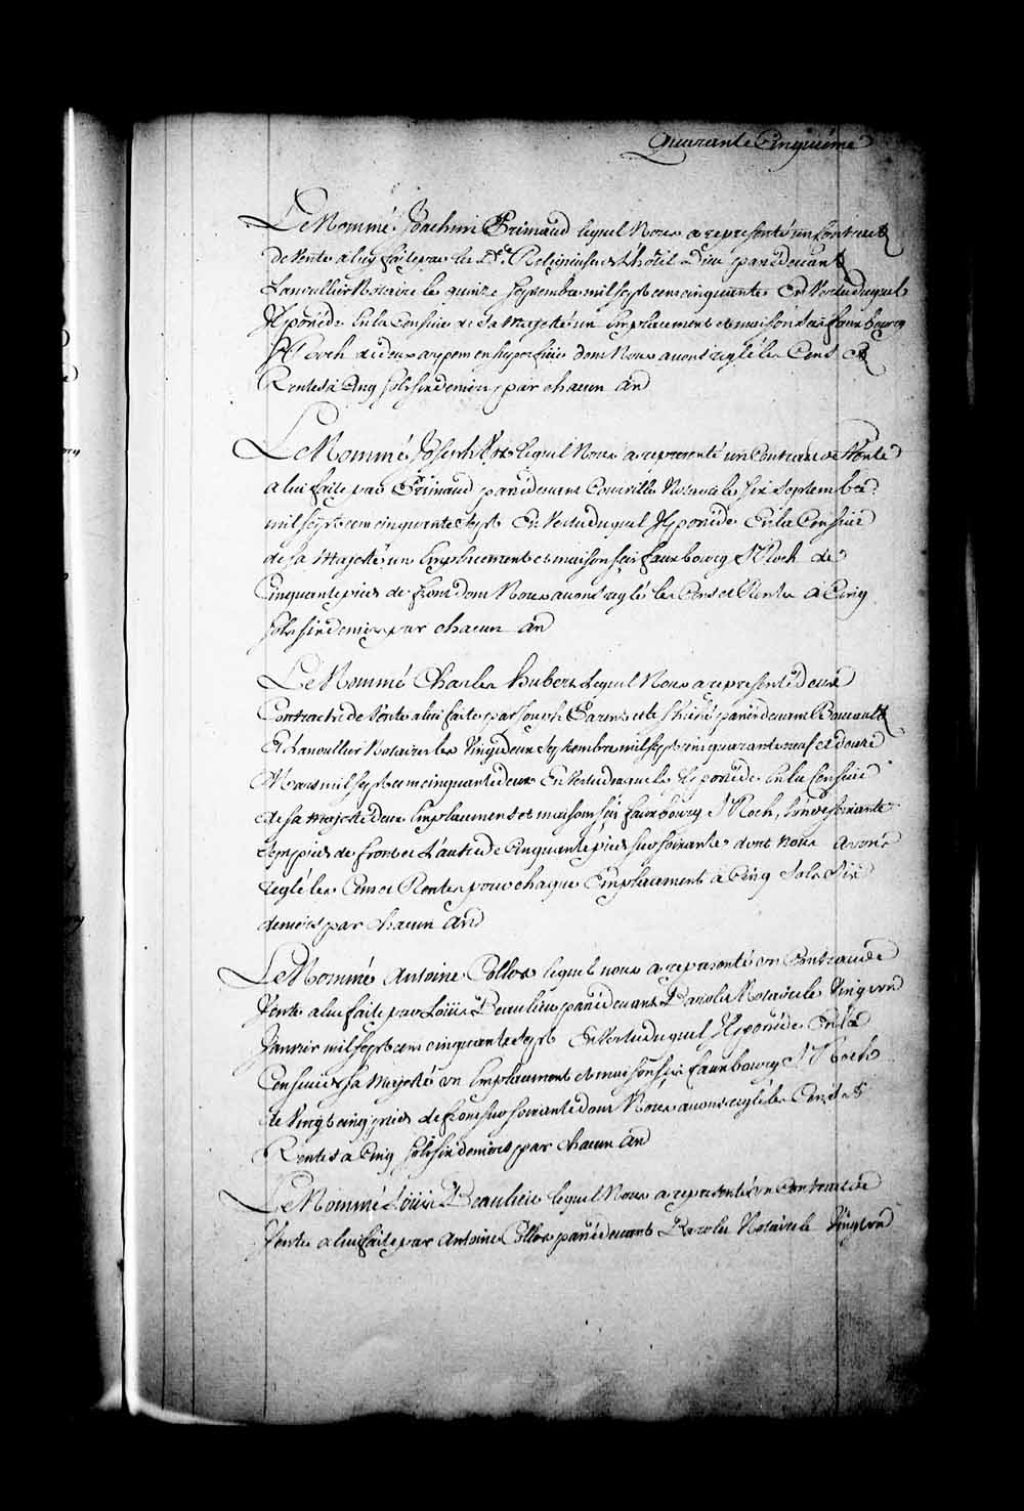 Quarante Cinquième
Le Nommé Joachim Primaud lequel Nous a representé un Contract
de Vente a luy faite par les Religieuses de L'hôtel Dieu passé devant
Lanoullier Notaire le quinze septembre mil sept cent cinquante En Vertu duquel
Il possede En la Censive de Sa Majesté un Emplacement et maison sçis fauxbourg
St Roch de deux arpens en superficie dont Nous avons reglé les Cens Et
Rentes à Cinq sols six deniers par chacun An
Le Nommé Joseph lequel Nous a representé un Contract de Vente
a lui faite par Primaud passé devant Courville Notaire le six Septembre
mil sept cent cinquante sept En Vertu duquel Il possède En la Censive
de sa Majesté un Emplacement et maison sçis fauxbourg St Roch de
Cinquante pieds de front dont Nous avons reglé les Cens et Rentes à Cinq
sols six deniers par chacun An
Le Nommé Charles Hubert Lequel Nous a representé deux
Contracts de Vente a lui faite par Joseph Parent et le passé devant Boucault
Et Lanoullier Notaires les Vingt deux septembre mil sept cent quarante neuf et douze
Mars mil sept cent cinquante deux En Vertu desquels Il possède En la Censive
de sa Majesté deux Emplacements et maison sçis fauxbourg St Roch, L'un de soixante
pieds de front et L'autre de Cinquante pieds sur soixante dont Nous avons
reglé les Cens et Rentes pour chaque Emplacement à Cinq Sols Six
deniers par chacun An
Le Nommé Antoine Pollos lequel nous a representé un Contract de
Vente a lui faite par Loüis Beaulieu passé devant Barolet Notaire le Vingt un
Janvier mil sept cent cinquante sept En Vertu duquel Il possède En la
Censive de sa Majesté un Emplacement et maison sçis fauxbourg St Roch
de Vingt cinq pieds de front sur soixante dont Nous avons reglé les Cens et
Rentes a Cinq sols six deniers par chacun An
Le Nommé Loüis Beaulieu lequel Nous a representé un Contract de
Vente a lui faite par Antoine Pollos passé devant Barolet Notaire le Vingt un